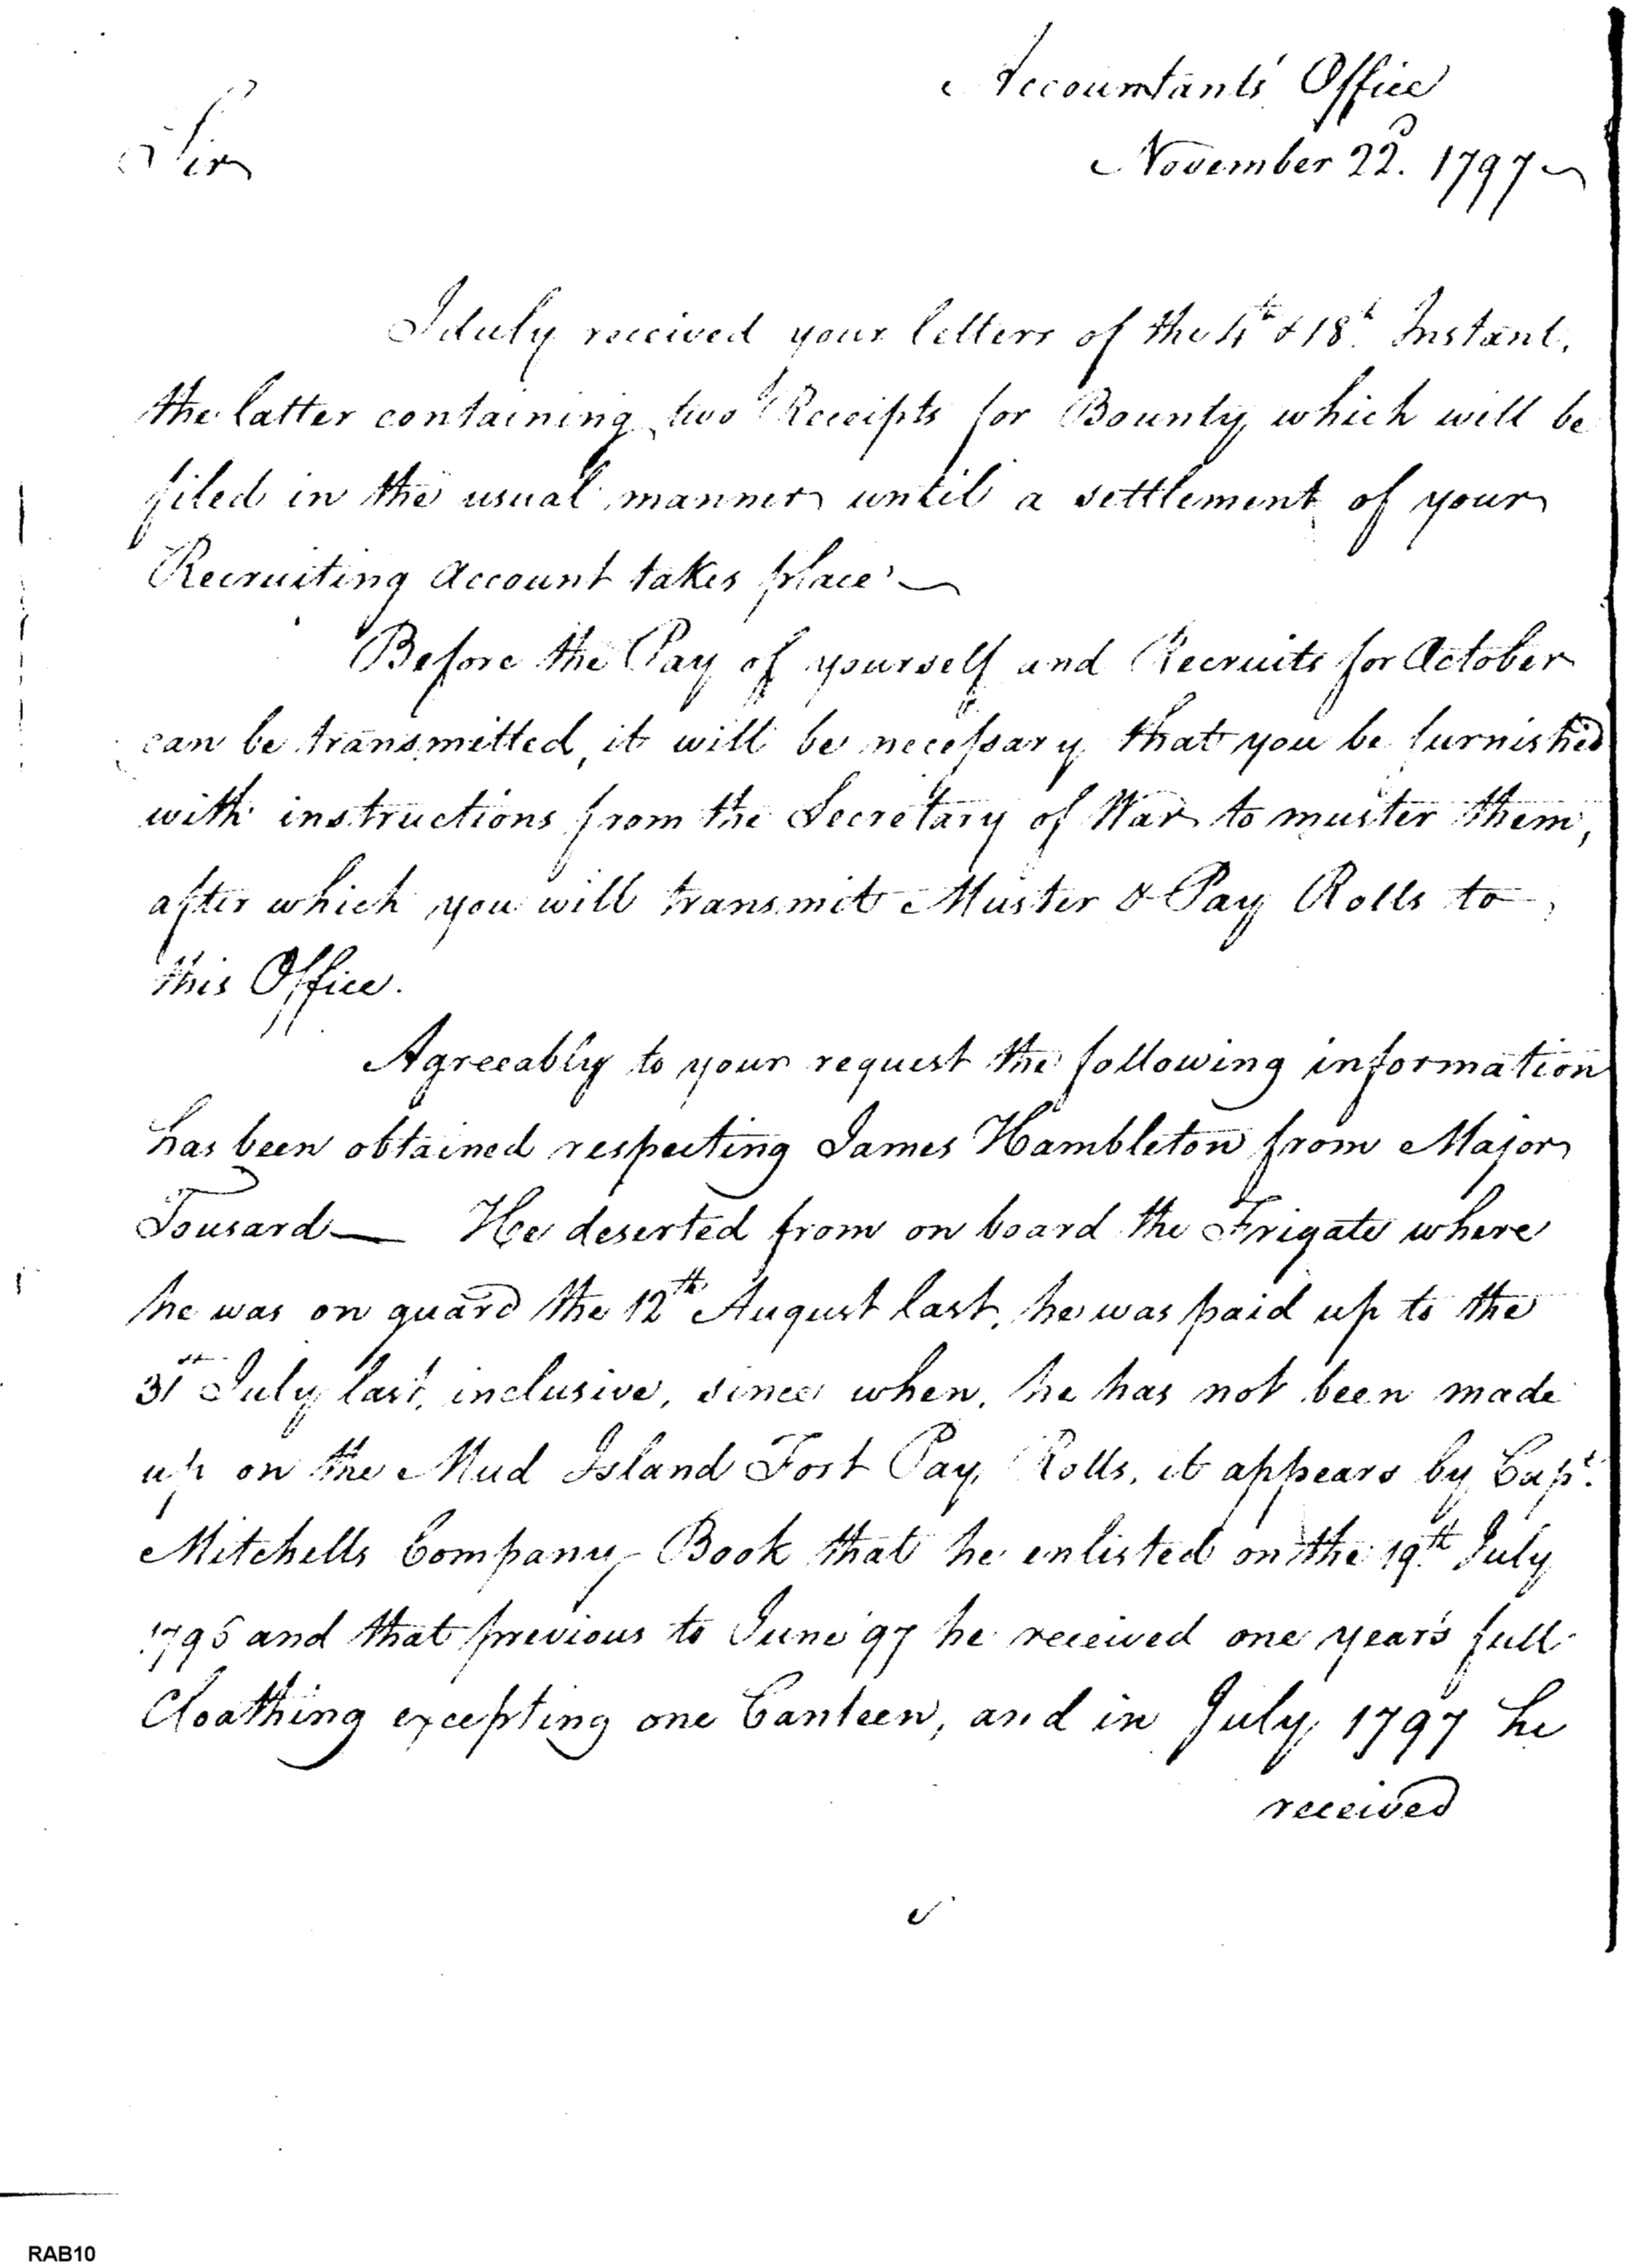 Accountants' Office
Sir
November 22d. 1797
I duly received your letters of the 4th & 18th Instant,
the latter containing two Receipts for Bounty which will be
filed in the usual manner until a settlement of your
Recruiting Account takes place.
Before the Pay of yourself and Recruits for October
can be transmitted, it will be necessary that you be furnished
with instructions from the Secretary of War to muster them,
after which you will transmit Muster & Pay Rolls to
this Office.
Agreeably to your request the following information
has been obtained respecting James Hambleton from Major
Tousard— He deserted from on board the Frigate where
he was on guard the 12th August last, he was paid up to the
31st July last, inclusive, since when, he has not been made
up on the Mud Island Fort Pay Rolls, it appears by Capt.
Mitchells Company Book that he enlisted on the 19th July
and that previous to June 97 he received one year's full
Cloathing excepting one Canteen, and in July 1797 he
received
RAB10